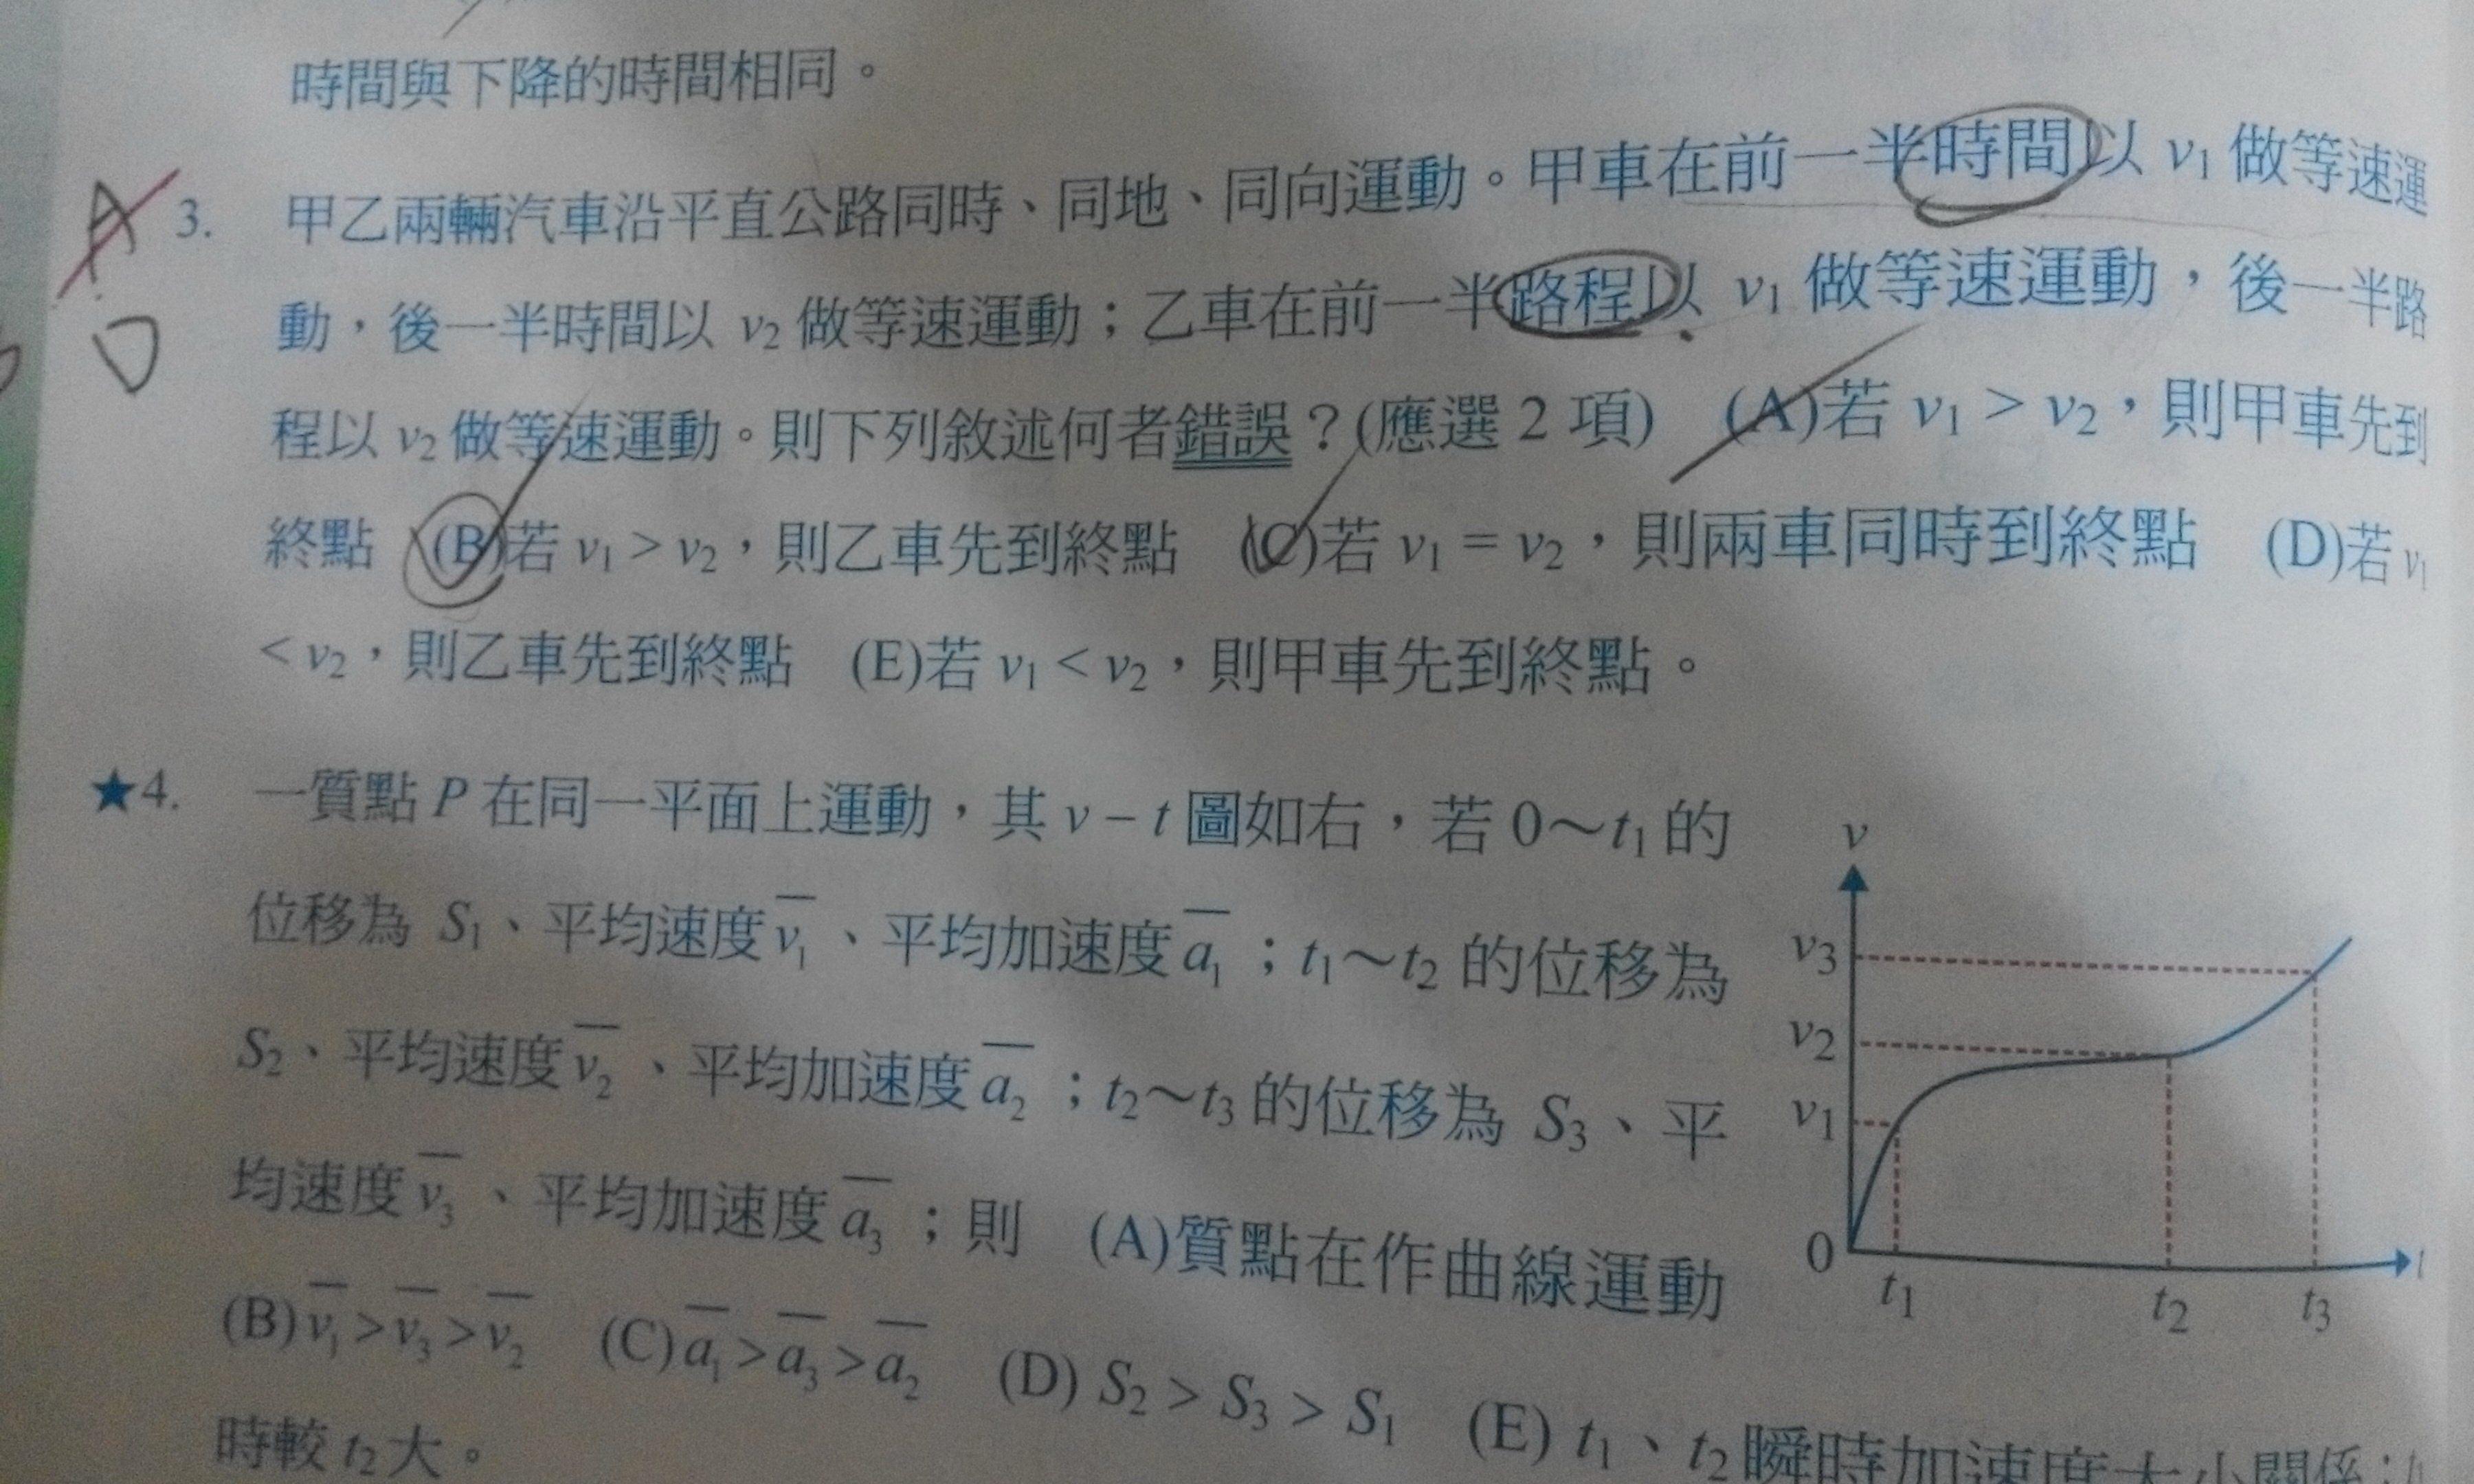 時間與下降的時間相同。
A 3. 甲乙兩輛汽車沿平直公路同時、同地、同向運動。甲車在前一半時間以 v₁ 做等速運
D 動，後一半時間以 v₂ 做等速運動；乙車在前一半路程以 v₁ 做等速運動，後一半路
程以 v₂ 做等速運動。則下列敘述何者錯誤？(應選 2 項) (A)若 v₁ > v₂，則甲車先到
終點 (B)若 v₁ > v₂，則乙車先到終點 (C)若 v₁ = v₂，則兩車同時到終點 (D)若 v₁
< v₂，則乙車先到終點 (E)若 v₁ < v₂，則甲車先到終點。
★4. 一質點 P 在同一平面上運動，其 v – t 圖如右，若 0～t₁ 的
位移為 S₁、平均速度 v̅₁、平均加速度 a̅₁；t₁～t₂ 的位移為
S₂、平均速度 v̅₂、平均加速度 a̅₂；t₂～t₃ 的位移為 S₃、平
均速度 v̅₃、平均加速度 a̅₃；則 (A)質點在作曲線運動
(B) v̅₁ > v̅₃ > v̅₂ (C) a̅₁ > a̅₃ > a̅₂ (D) S₂ > S₃ > S₁ (E) t₁、t₂ 瞬時加速度大小關係：
時較 t₂ 大。
v
v₃
v₂
v₁
0
t₁ t₂ t₃ t